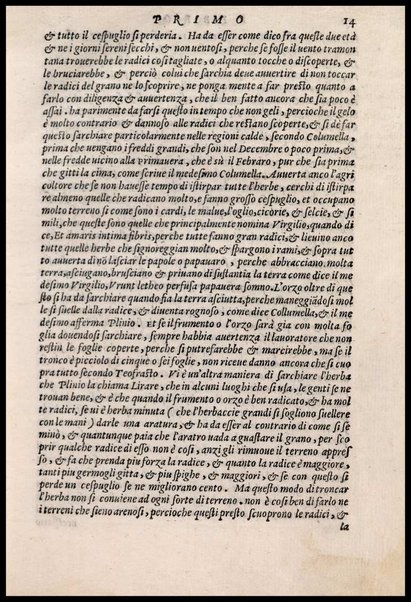 PRIMO 14
& tutto il cespuglio si perderia. Ha da esser come dico fra queste due età
& ne i giorni sereni secchi, & non uentosi, perche se fosse il uento tramon
tana trouerebbe le radici cosi tagliate, o alquanto tocche o discoperte, &
le bruciarebbe, & perciò colui che sarchia deue auuertire di non toccar
le radici del grano ne lo scoprire, ne ponga mente a far presto quanto a
farlo con diligenza & auuertenza, che il ben fatto ancora che sia poco è
assai. ha parimente da farsi questo in tempo che non geli, percioche il gelo
è molto contrario & dannoso alle radici che restano scoperte, & si dè far
questo sarchiare particolarmente nelle regioni calde, secondo Columella,
prima che uengano i freddi grandi, che son nel Decembre o poco prima, &
nelle fredde uicino alla primauera, che è sù il Febraro, pur che sia prima
che gitti la cima, come scriue il medesimo Columella. Auuerta anco l'agri
coltore che se non hauesse tempo di istirpar tutte l'herbe, cerchi di istirpa
re almeno quelle che radicano molto, e fanno grosso cespuglio, et occupano
molto terreno si come sono i cardi, le malue, l'oglio, cicorie, & felcie, & si
mili, che queste sono quelle che principalmente nomina Virgilio, quando di
ce, Et amaris intima fibris, perche tutte fanno gran radici, & lieuino anco
tutte quelle herbe che signoreggian molto, & spargono i rami, & sopra tut
to auuerta di nō lasciar le papole o papauaro, perche abbracciano molta
terra, asciugano, brusciano & priuano di sustantia la terra come dice il me
desimo Virgilio, Vrunt letheo perfusa papauera somno. L'orzo oltre di que
sto si ha da sarchiare quando fia la terra asciutta, perche maneggiādosi mol
le si suelle dalla radice, & diuenta rognoso, come dice Collumella, & il me
desimo afferma Plinio. Et se il frumento o l'orzo sarà gia con molta fo
glia douendosi sarchiare, sempre habbia auertenza il lauoratore che non
restin le foglie coperte, perche si putrefarebbe & marcirebbe, ma se il
tronco è picciolo di cinque o sei foglie, non riceue danno ancora che si cuo
pra tutto secondo Teofrasto. Vi è un'altra maniera di sarchiare l'herba
che Plinio la chiama Lirare, che in alcuni luoghi che si usa, le genti se ne
trouan bene, & è che quando il frumento o orzo è ben radicato, & ha mol
te radici, se ui è herba minuta ( che l'herbaccie grandi si sogliono suellere
con le mani ) darle una aratura, & ha da esser al contrario di come si se
minò, & quantunque paia che l'aratro uada a guastare il grano, per sco
prir qualche radice di esso non è cosi, anzi gli rimuoue il terreno appres
so, & fa che prenda piu forza la radice, & quanto la radice è maggiore,
tanti piu germogli gitta, & piu spighe, & maggiori, & se con questo si
perde un cespuglio se ne migliorano cento. Ma questo modo di troncar
l'herba non si conuiene ad ogni sorte di terreno. non è cosi ben di farlo ne
i terreni che sieno arenosi, percioche questi presto scuoprono le radici, &
la